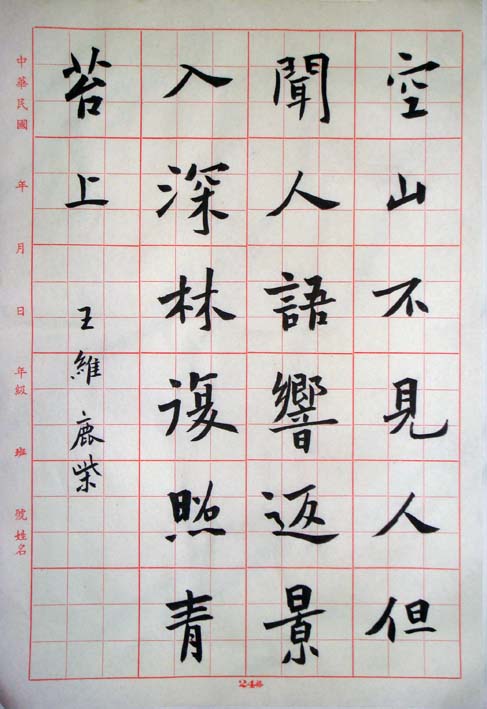 空山不見人但
聞人語響返景
入深林復照青
苔上
王維 鹿柴
中華民國 年 月 日 年級 班 號 姓名
24格